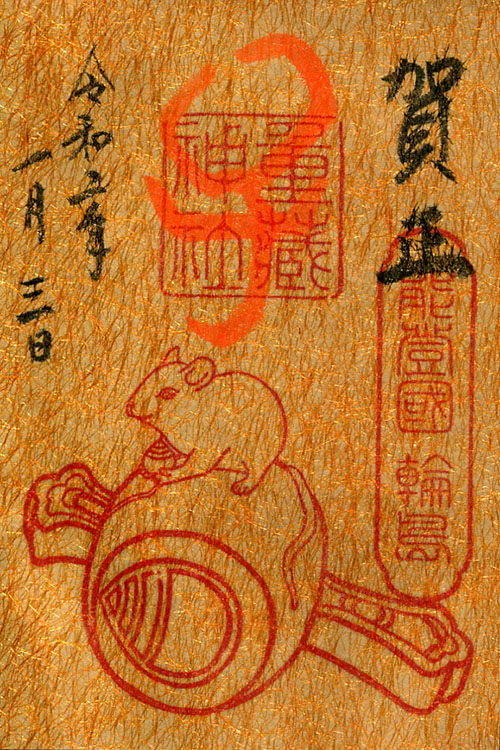 賀正
能登國 輪島
重藏
神社
令和二年
一月三日